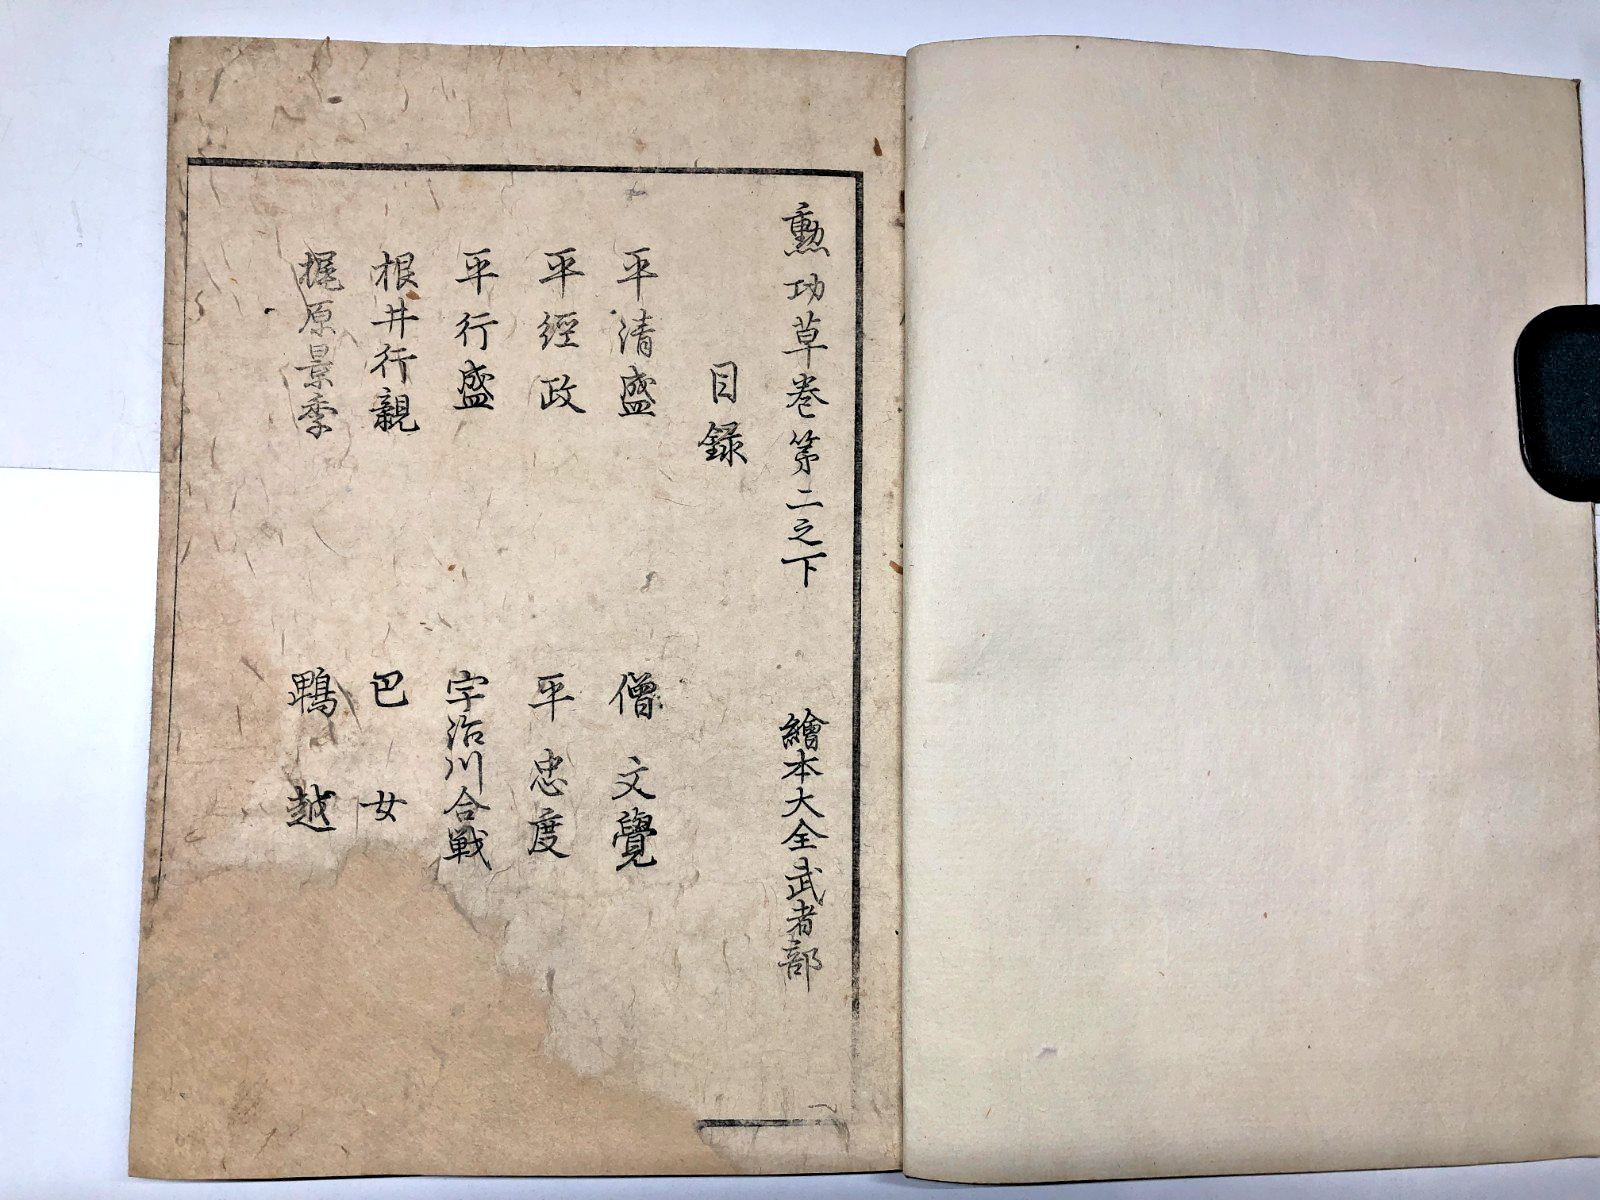 勲功草巻第二之下　繪本大全武者部
目録
平清盛　僧文覺
平經政　平忠度
平行盛　宇治川合戦
根井行親　巴女
梶原景季　鵯越